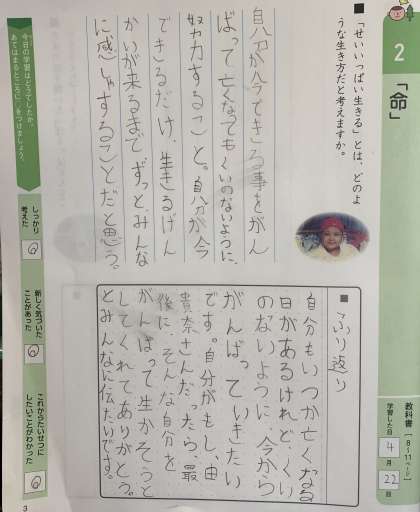 2
「命」
教科書[8~11ページ]
学習した日 4月22日
■「せいいっぱい生きる」とは、どのよ
うな生き方だと考えますか。
自分が今できる事をがん
ばって亡くなてもくいのないように、
努力すること。自分が今
できるだけ、生きるげん
かいが来るまでずっとみんな
に感しゃすることだと思う。
■ふり返り
自分もいつか亡くなる
日があるけれど、くい
のないように、今から
がんばっていきたい
です。自分がもし、由
貴奈さんだったら、最
後に、そんな自分を
がんばって生かそうと
してくれてありがとう。
とみんなに伝たいです。
今日の学習はどうでしたか。
あてはまるところに○をつけましょう。
しっかり
考えた
新しく気づいた
ことがあった
これからたいせつに
したいことがわかった
3